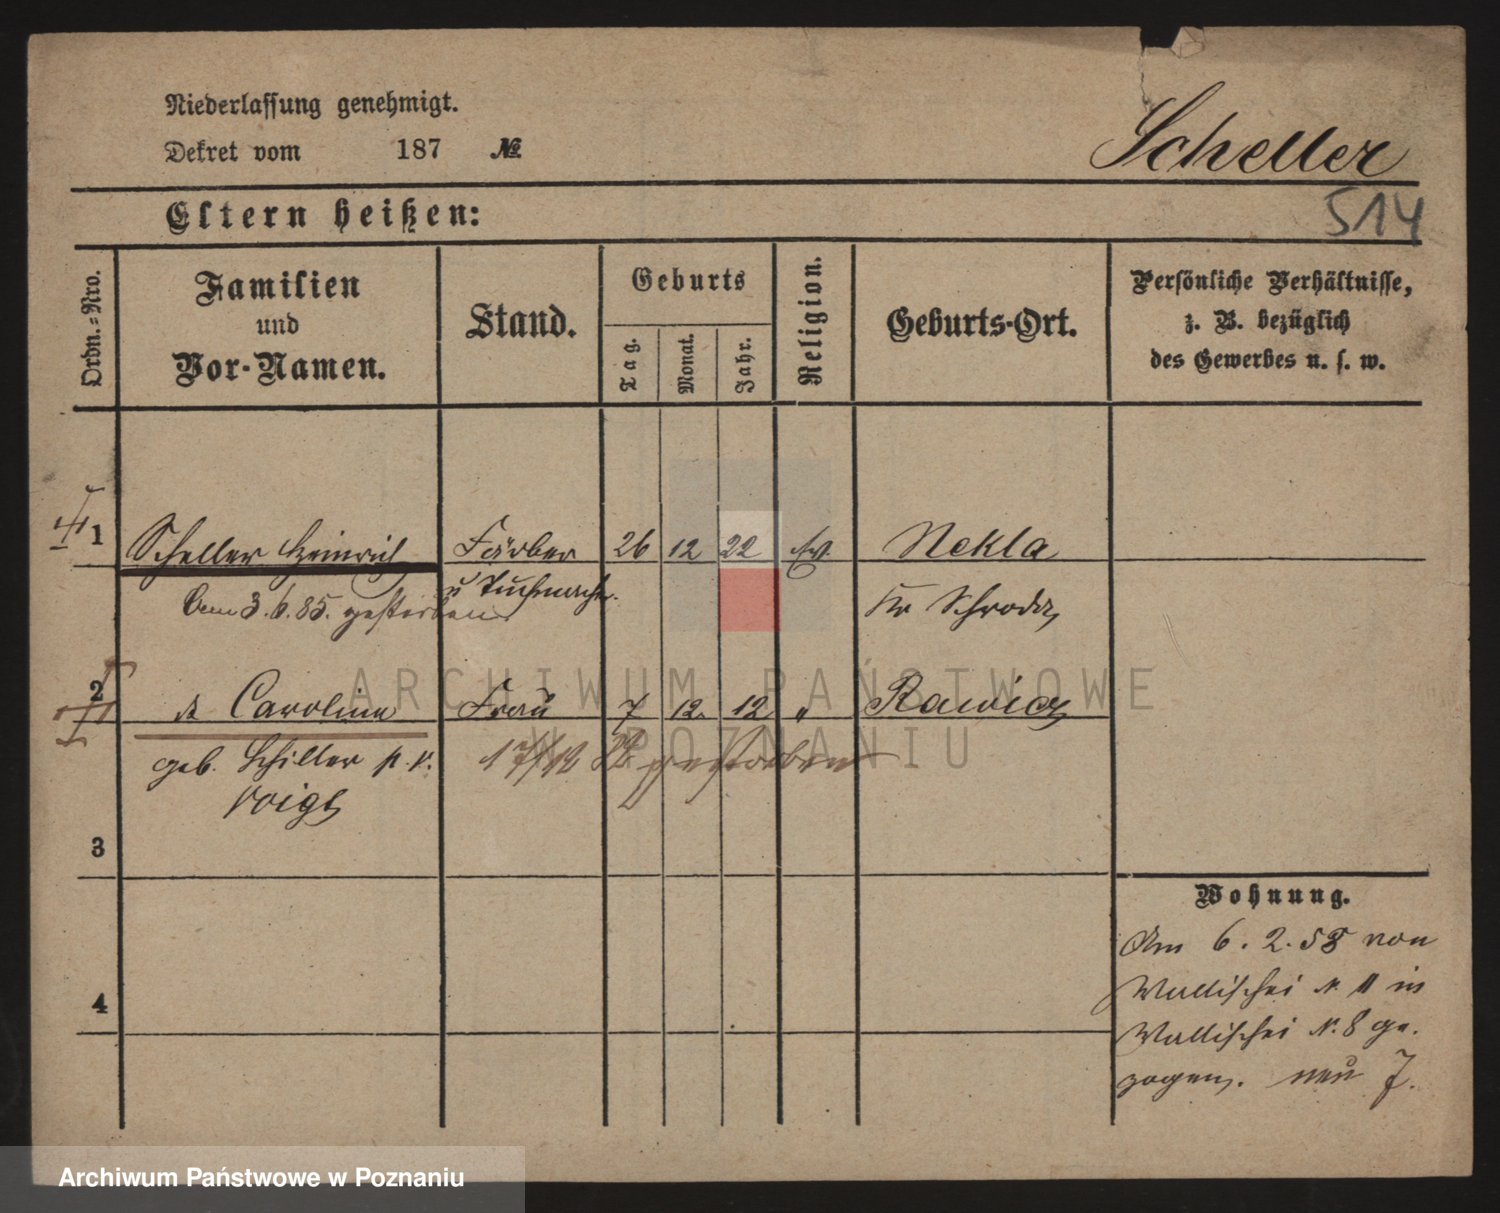 Niederlassung genehmigt.
Dekret vom 187 №
Scheller
514
Eltern heißen:
Ordn.-Nro.
Familien
und
Vor-Namen.
Stand.
Geburts
Tag.
Monat.
Jahr.
Religion.
Geburts-Ort.
Persönliche Verhältnisse,
z. B. bezüglich
des Gewerbes u. s. w.
1 Scheller Heinrich Färber 26 12 22 ev. Nekla
u Tuchmacher.
Am 3.6.85. gestorben
Kr Schroda
2 Caroline Frau 7 12 12 " Rawicz
geb. Schiller p. v.
Voigt
17/12 82 gestorben
3
4
Wohnung.
Am 6. 2. 58 von
Wallischei N. 11 in
Wallischei N. 8 ge.
zogen. neu 7.
ARCHIWUM PAŃSTWOWE
W POZNANIU
Archiwum Państwowe w Poznaniu